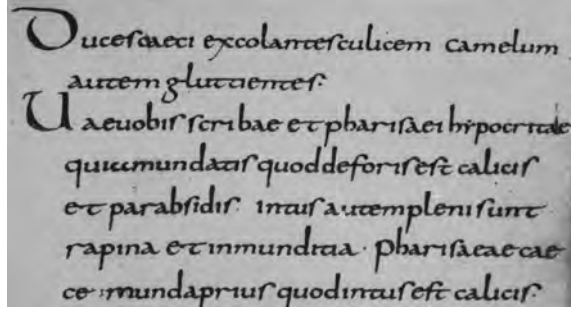 Duces caeci excolantes culicem camelum
autem gluttientes.
Uae uobis scribae et pharisaei hypocritae
qui mundatis quod deforis est calicis
et parabsidis. intus autem pleni sunt
rapina et inmunditia. pharisaeae cae
ce. munda prius quod intus est calicis.